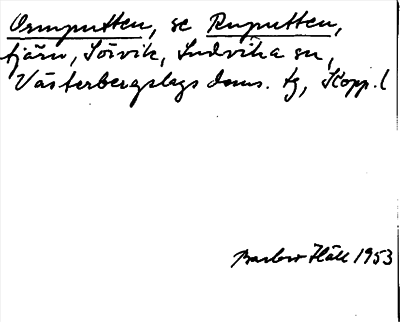 Ormputten, se Ruputten,
tjärn, Sörvik, Ludvika sn,
Västerbergslags doms. tg, Kopp. l
Barbro Häll 1953